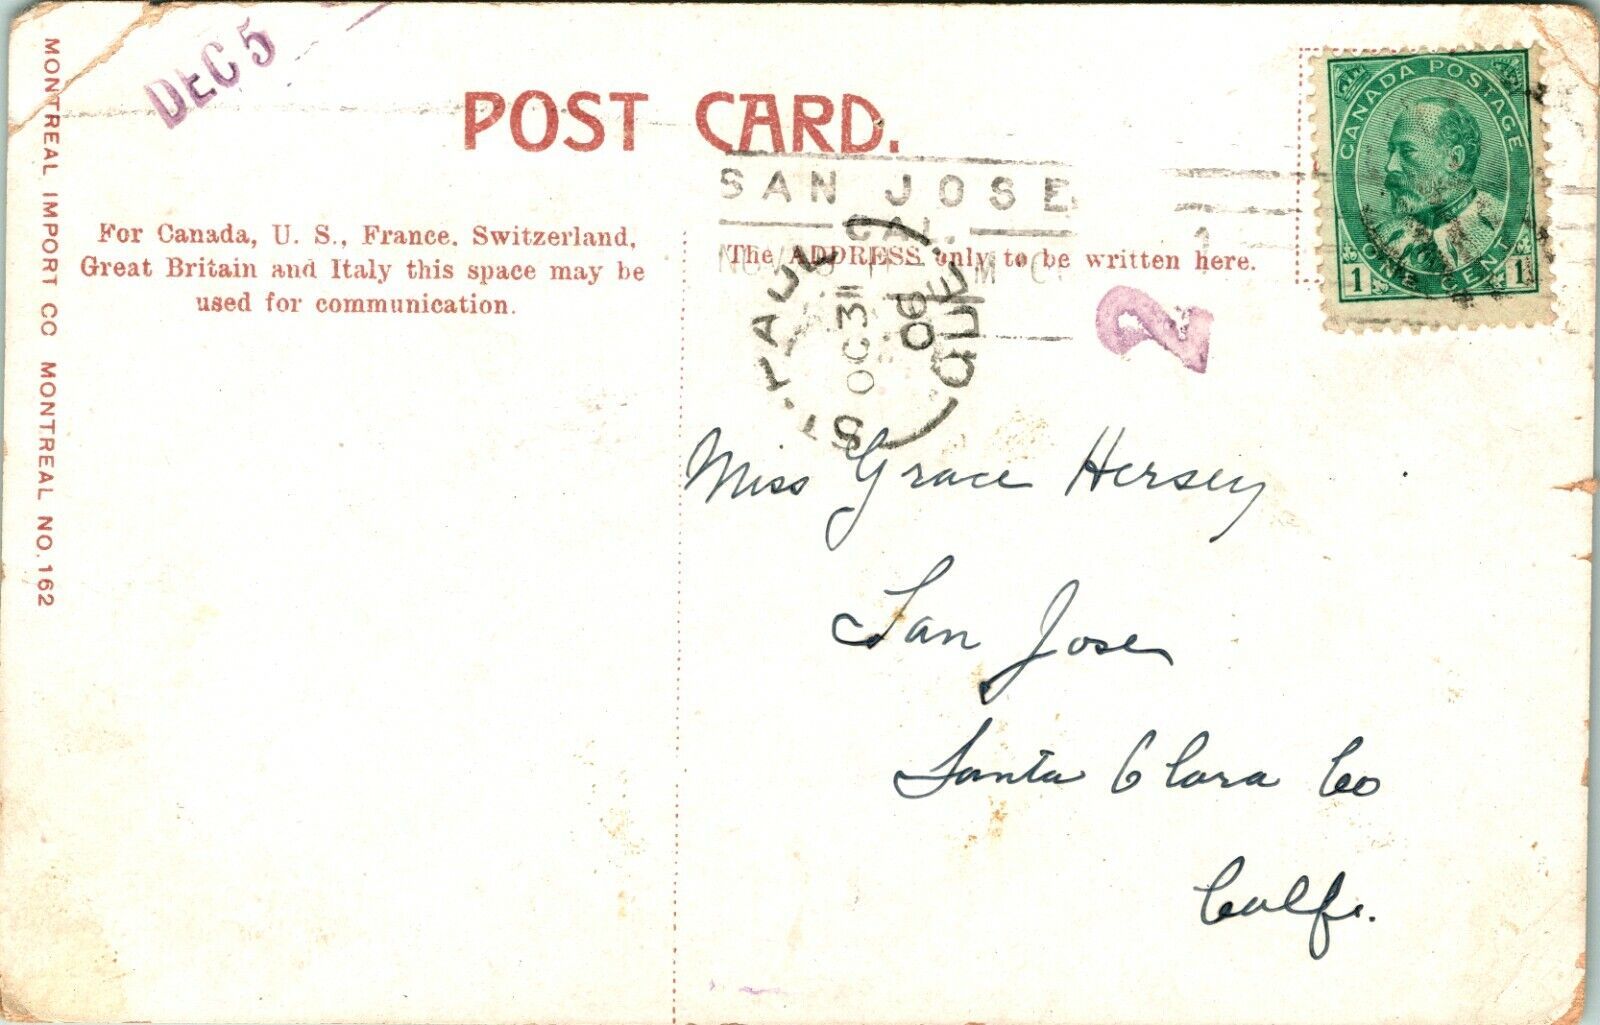 DEC 5
POST CARD.
CANADA POSTAGE
1 ONE CENT 1
SAN JOSE
CAL.
For Canada, U. S., France. Switzerland,
Great Britain and Italy this space may be
used for communication.
The ADDRESS only to be written here.
NOV
ST. PAUL QUE
OC 31
06
2
MONTREAL IMPORT CO MONTREAL NO. 162
Miss Grace Hersey
San Jose
Santa Clara Co
Calf.